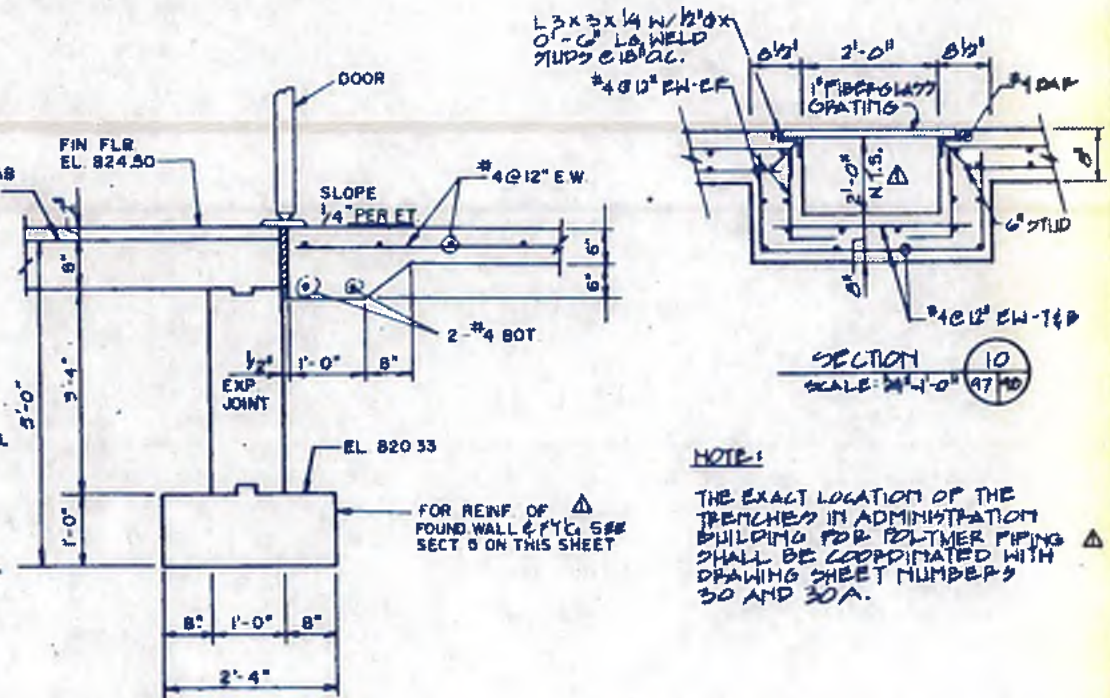 DOOR
FIN FLR.
EL. 824.50
SLOPE
1/4" PER FT
#4@12" E.W.
6"
6"
8"
2-#4 BOT
1/2"
EXP.
JOINT
1'-0"
8"
5'-0"
3'-4"
1'-0"
EL. 820.33
FOR REINF. OF
FOUND. WALL & FTG. SEE
SECT 5 ON THIS SHEET
8"
1'-0"
8"
2'-4"
L 3 X 3 X 1/4 W/ 1/2"Ø X
0'-6" LG. WELD
STUDS @ 18" O.C.
#4 @ 12" EW-EF
8 1/2"
2'-0"
8 1/2"
1" FIBERGLASS
GRATING
#4 BAR
2'-0"
N.T.S.
8"
6" STUD
8"
#4 @ 12" EW-T&B
SECTION
10
SCALE: 3/4"=1'-0"
97
NOTE:
THE EXACT LOCATION OF THE
TRENCHES IN ADMINISTRATION
BUILDING FOR POLYMER PIPING
SHALL BE COORDINATED WITH
DRAWING SHEET NUMBERS
30 AND 30A.